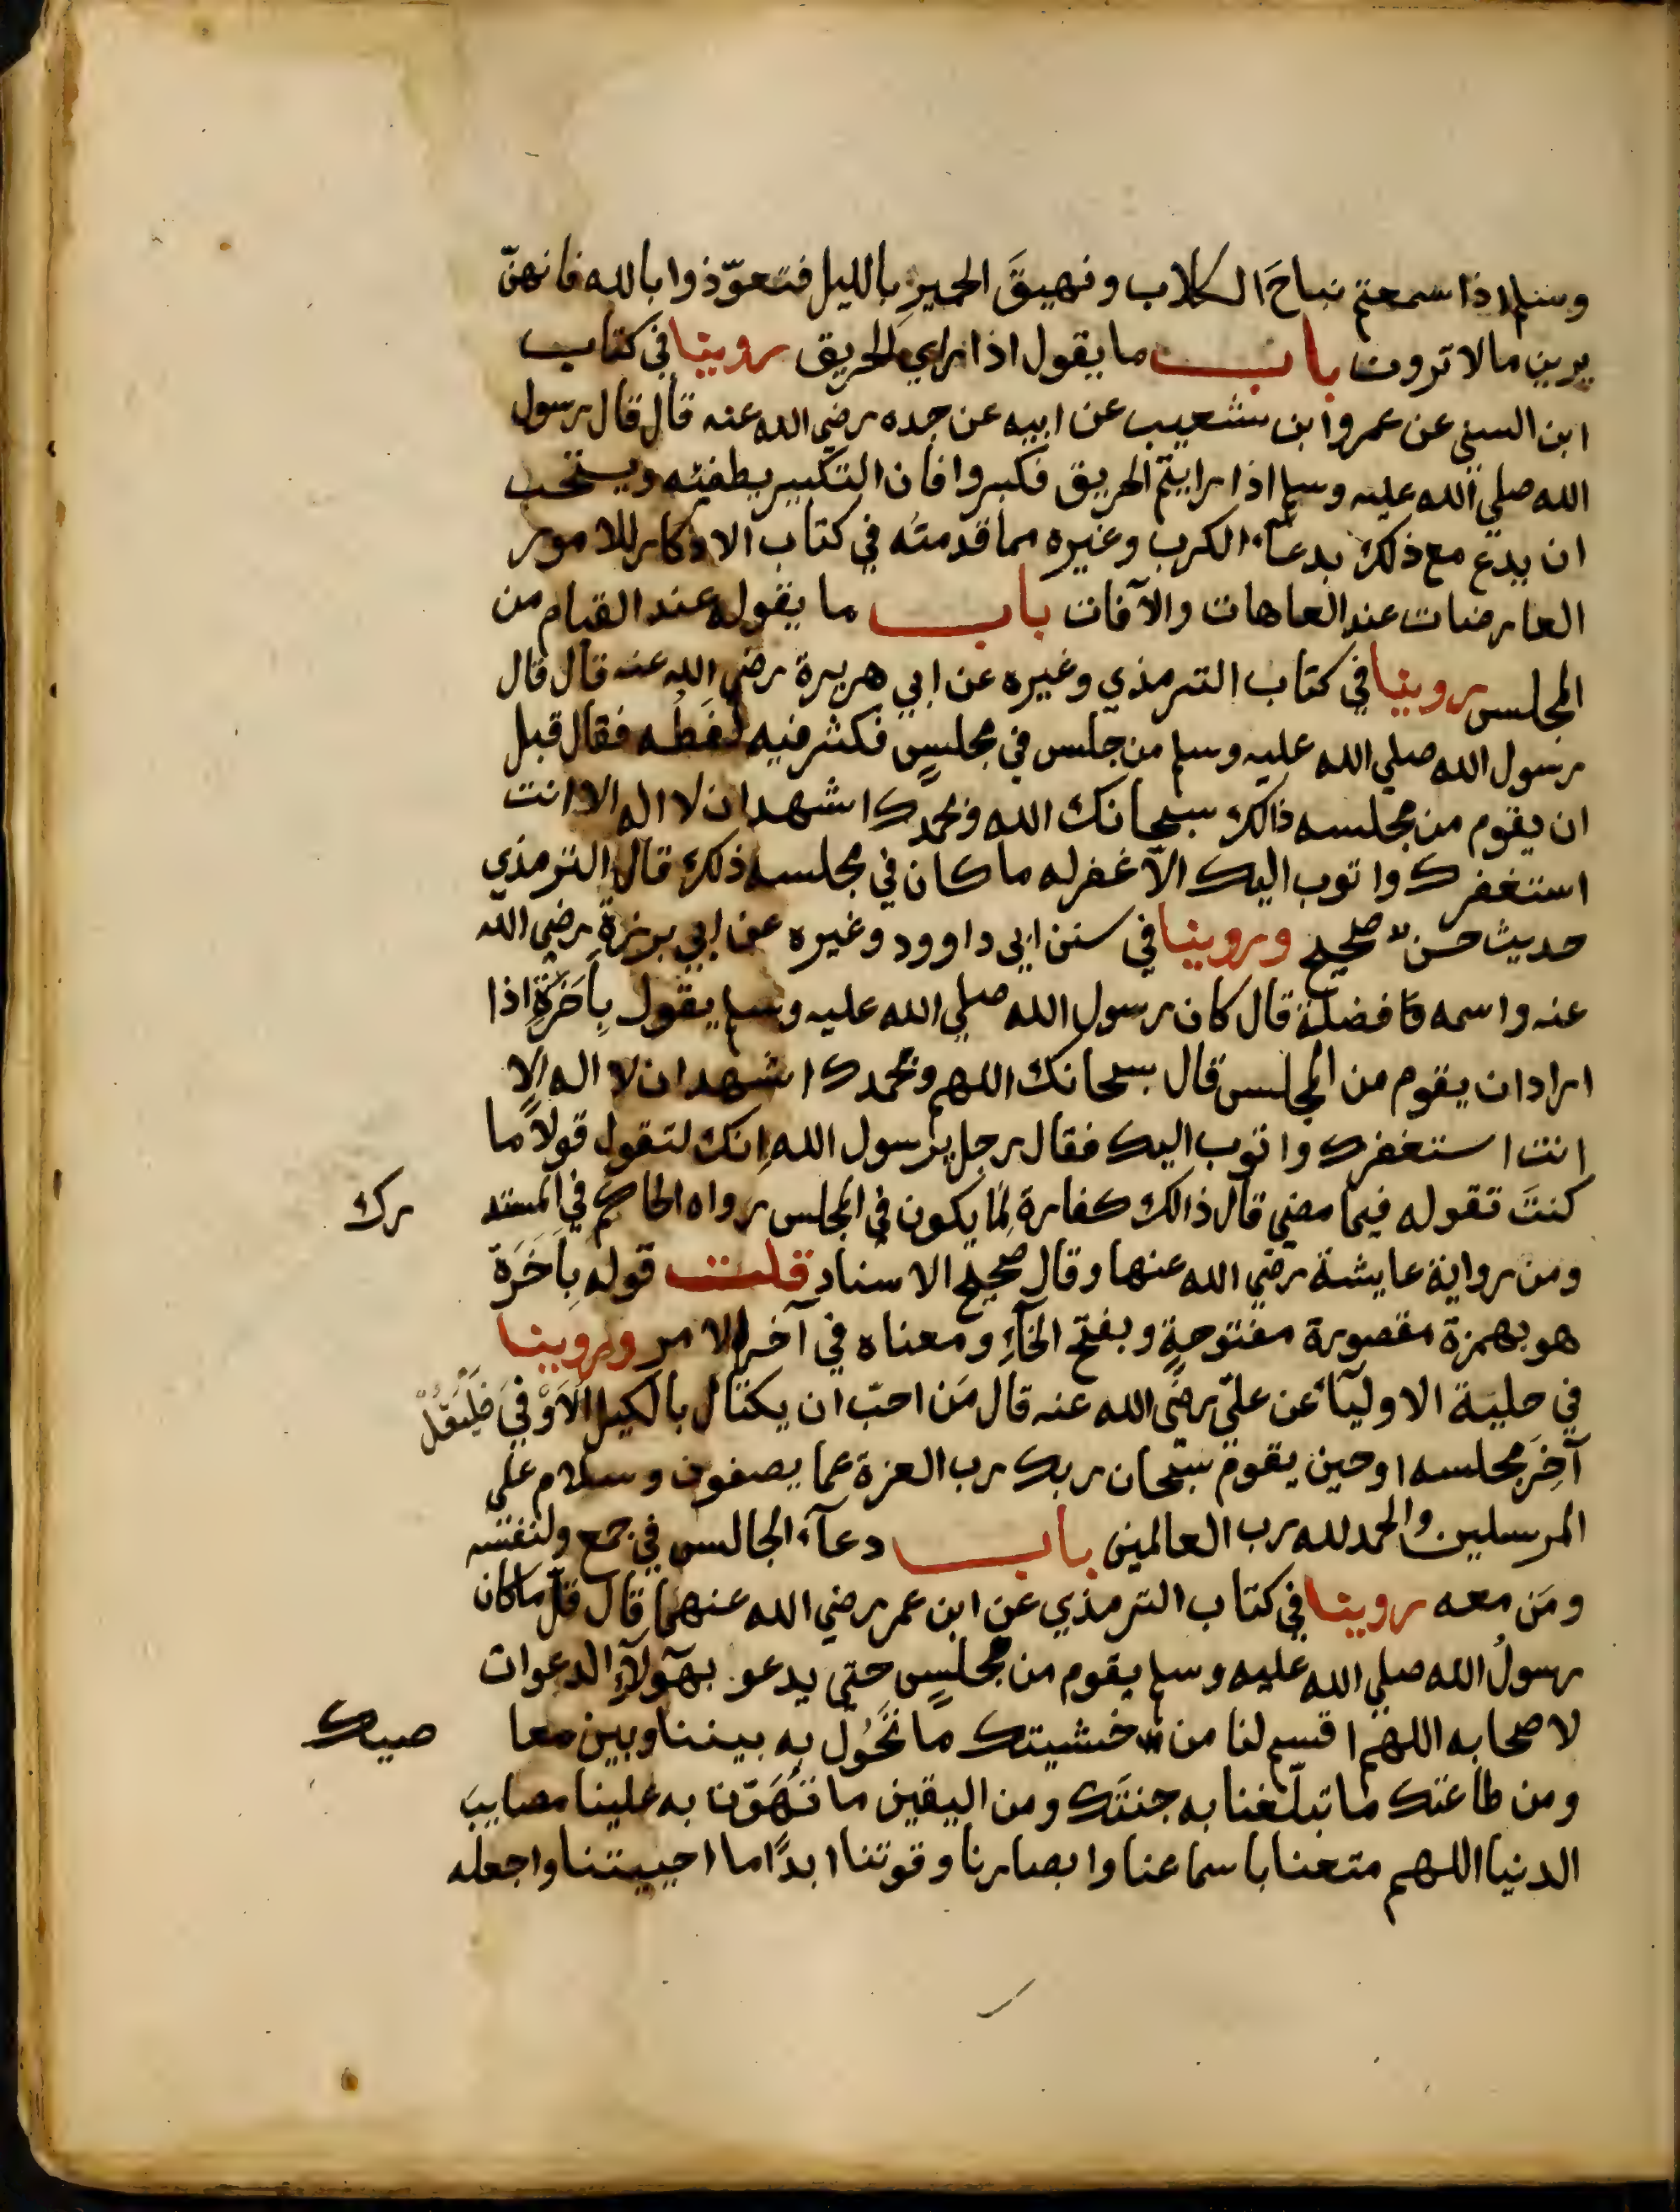 وسلم اذا سمعتم نباحَ الكلاب ونهيقَ الحميرِ بالليل فتعوّذوا بالله فانهنّ
يرين مالا ترون باب ما يقول اذا راي الحريق روينا في كتاب
ابن السني عن عمرو ابن شعيب عن ابيه عن جده رضي الله عنه قال قال رسول
الله صلي الله عليه وسلم اذا رايتم الحريق فكبروا فان التكبير يطفئه ويستحب
ان يدع مع ذلك بدعآء الكرب وغيره مما قدمتُه في كتاب الاذكار للامور
العارضات عند العاهات والآفات باب ما يقوله عند القيام من
المجلس روينا في كتاب الترمذي وغيره عن ابي هريرة رضي الله عنه قال قال
رسول الله صلي الله عليه وسلم من جلس في مجلسٍ فكثر فيه لغطُه فقال قبل
ان يقوم من مجلسه ذالك سبحانك الله وبحمدك اشهد ان لا اله الا انت
استغفرك واتوب اليك الاّ غفر له ما كان في مجلسه ذلك قال الترمذي
حديث حسن صحيح وروينا في سنن ابي داوود وغيره عن ابي برزة رضي الله
عنه واسمه فضلة قال كان رسول الله صلي الله عليه وسلم يقول بِاَخَرَةٍ اذا
اراد ان يقوم من المجلس قال سبحانك اللهم وبحمدك اشهد ان لا اله الا
انت استغفرك واتوب اليك فقال رجل يرسول الله اِنك لتقول قولاً ما
كنتَ تقوله فيما مضي قال ذالك كفارة لِمَا يكون في المجلس رواه الحاكم في المستد رك
ومن رواية عايشة رضي الله عنها وقال صحيح الاسناد قلت قوله بِاَخَرَة
هو بهمزة مقصورة مفتوحةٍ وبفتح الخآءِ ومعناه في آخر الامر وروينا
في حلية الاوليآء عن عليّ رضي الله عنه قال مَن احبّ ان يكتال بالكيل الاَوْفيَ فليَقُلْ
آخِرَ مجلسه او حين يقوم سبحان ربك رب العزة عما يصفون وسلام علي
المرسلين والحمد لله رب العالمين باب دعآء الجالس في جمع ولنفسه
ومَن معه روينا في كتاب الترمذي عن ابن عمر رضي الله عنهما قال قلّ ما كان
رسولُ الله صلي الله عليه وسلم يقوم من مجلسٍ حتي يدعو بهؤلآءِ الدعوات
لاصحابه اللهم اقسم لنا من خشيتك ما تَحُول به بيننا وبين معا صيك
ومن طاعتك ما تبلّغنا به جنتَك ومن اليقين ما تُهَوّن به علينا مصايبَ
الدنيا اللهم متعنا باسماعنا وابصارنا وقوتنا ابدًا ما احييتنا واجعله